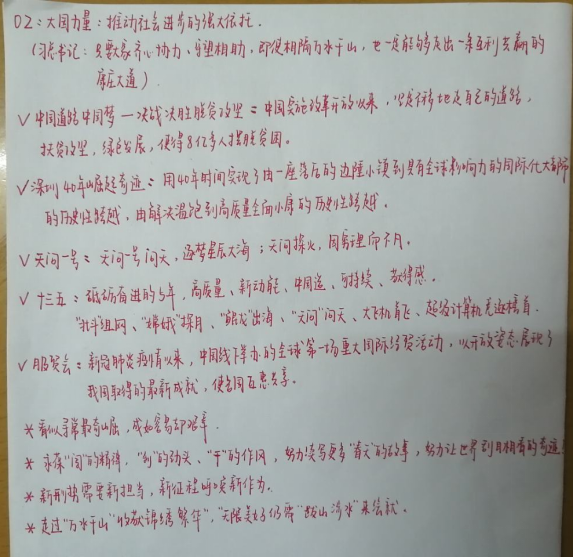 02：大国力量：推动社会进步的强大依托.
（习总书记：只要大家齐心协力、守望相助，即使相隔万水千山，也一定能够走出一条互利共赢的
康庄大道）
√ 中国道路中国梦——决战决胜脱贫攻坚：中国实施改革开放以来，坚定不移地走自己的道路，
扶贫攻坚，绿色发展，使得8亿多人摆脱贫困。
√ 深圳40年崛起奇迹：用40年时间实现了由一座落后的边陲小镇到具有全球影响力的国际化大都市
的历史性跨越，由解决温饱到高质量全面小康的历史性跨越.
√ 天问一号：天问一号问天，逐梦星辰大海；天问探火，国宝理而不凡.
√ 十三五：砥砺奋进的5年，高质量、新动能、中国造、可持续、获得感.
"北斗"组网、"嫦娥"探月、"蛟龙"出海、"天问"问天、大飞机首飞、超级计算机
√ 服贸会：新冠肺炎疫情以来，中国线下举办的全球第一场重大国际经贸活动，以开放姿态展现了
我国取得的最新成就，使各国互惠共享.
* 看似寻常最奇崛，成如容易却艰辛.
* 永葆"闯"的精神，"创"的劲头、"干"的作风，努力续写更多"春天"的故事，努力让世界刮目相看的奇迹！
* 新形势需要新担当，新征程呼唤新作为.
* 走过"万水千山"收获锦绣繁华，"无限美好仍需"跋山涉水"来尝试.